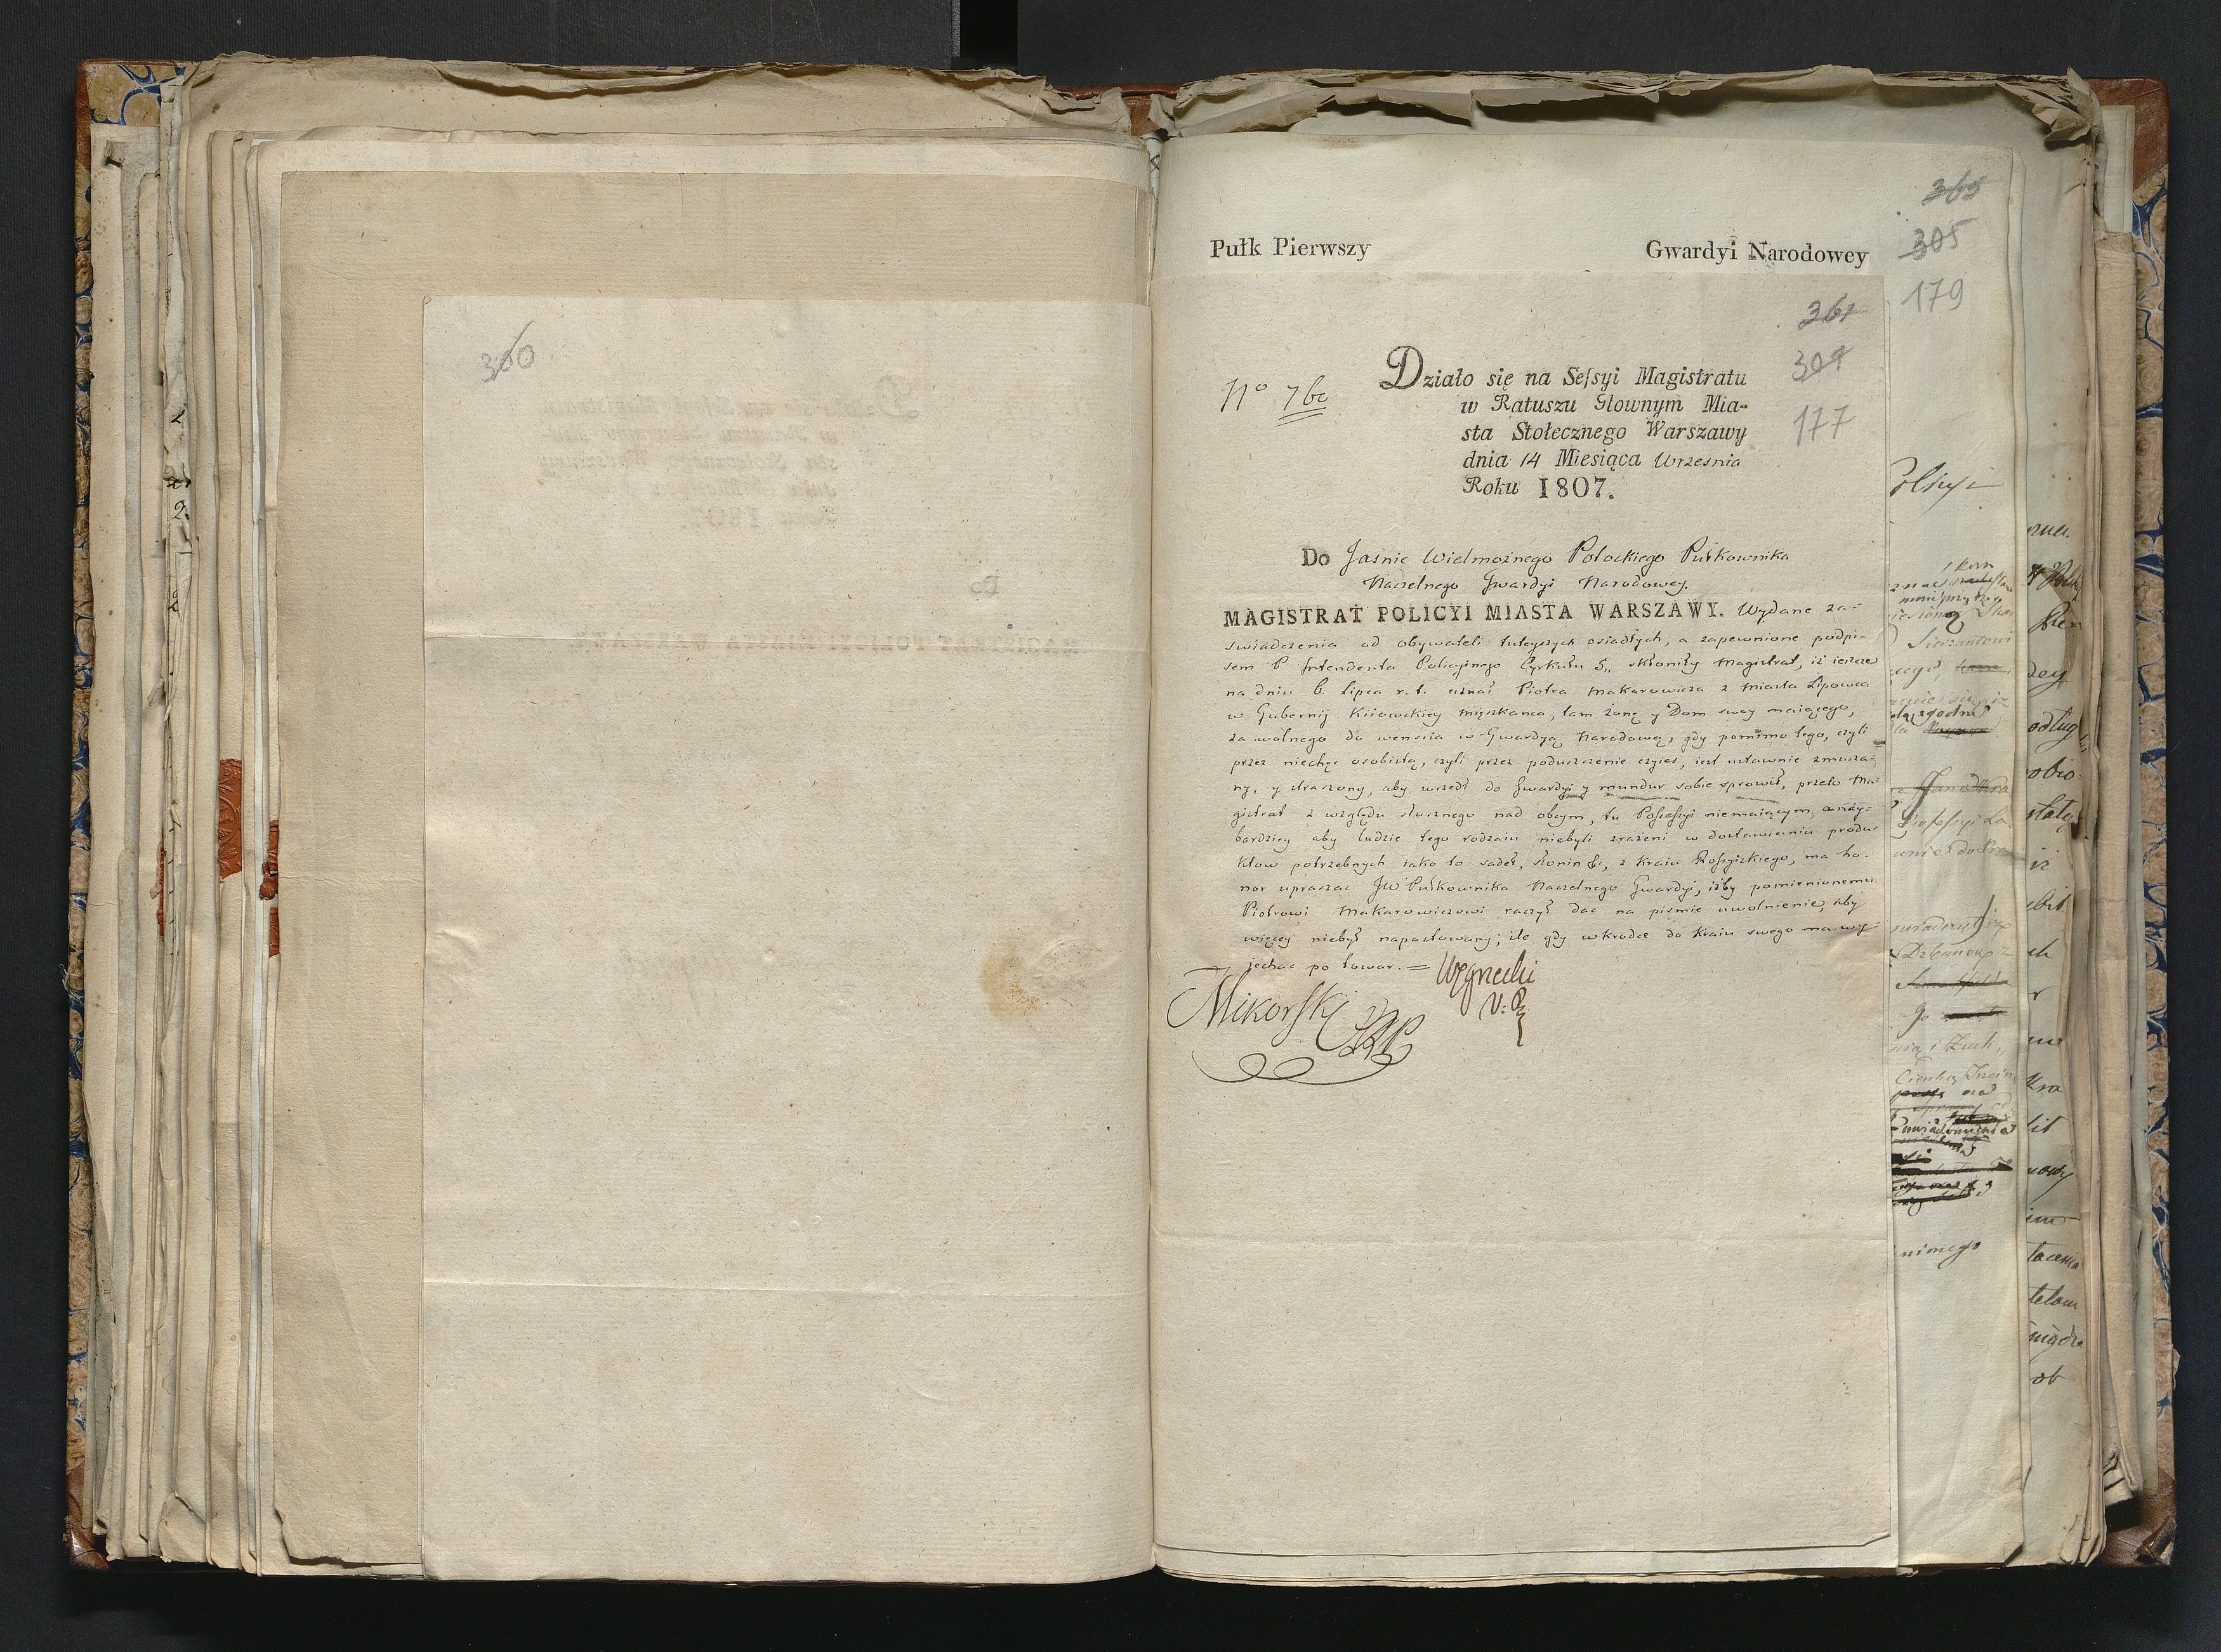 300
Pułk Pierwszy Gwardyi Narodowey
365
305
179
361
304
177
No 760
Działo się na Sessyi Magistratu
w Ratuszu Głownym Mia-
sta Stołecznego Warszawy
dnia 14 Miesiąca Września
Roku 1807.
Do Jaśnie Wielmożnego Potockiego Pułkownika
Naczelnego Gwardyi Narodowey.
MAGISTRAT POLICYI MIASTA WARSZAWY. Wydane za-
swiadczenia od obywateli tuteyszych osiadłych, a zapewnione podpi-
sem P Intendenta Policyinego Cyrkułu 5,, skłoniły Magistrat, iż ieszcze
na dniu 6. Lipca r. t. uznał Piotra Makarowicza z Miasta Lipowca
w Gubernij Kiiowskiey Mięszkanca, tam żonę y Dom swoy maiącego,
za wolnego do wensia w Gwardyą Narodową; gdy pomimo tego, czyli
przez niechęc osobistą, czyli przez poduszczenie czyies, iest ustawnie zmusza-
ny, y straszony, aby wszedł do Gwardyi y mundur sobie sprawił, przeto Ma-
gistrat z względu słusznego nad obcym, tu Possessyi niemaiącym, a nay-
bardziey aby ludzie tego rodzaiu niebyli zrażeni w dostawianiu produ-
ktow potrzebnych iako to sadeł, słonin &c, z Kraiu Rossyiskiego, ma ho-
nor upraszac JW Pułkownika Naczelnego Gwardyi, iżby pomienionemu
Piotrowi Makarowiczowi raczył dac na pismie uwolnienie, aby
więcey niebył napastowany; ile gdy wkrodce do Kraiu swego ma wy-
jechac po towar. =
Węgrzecki
V. P.
Mikorski
nionego